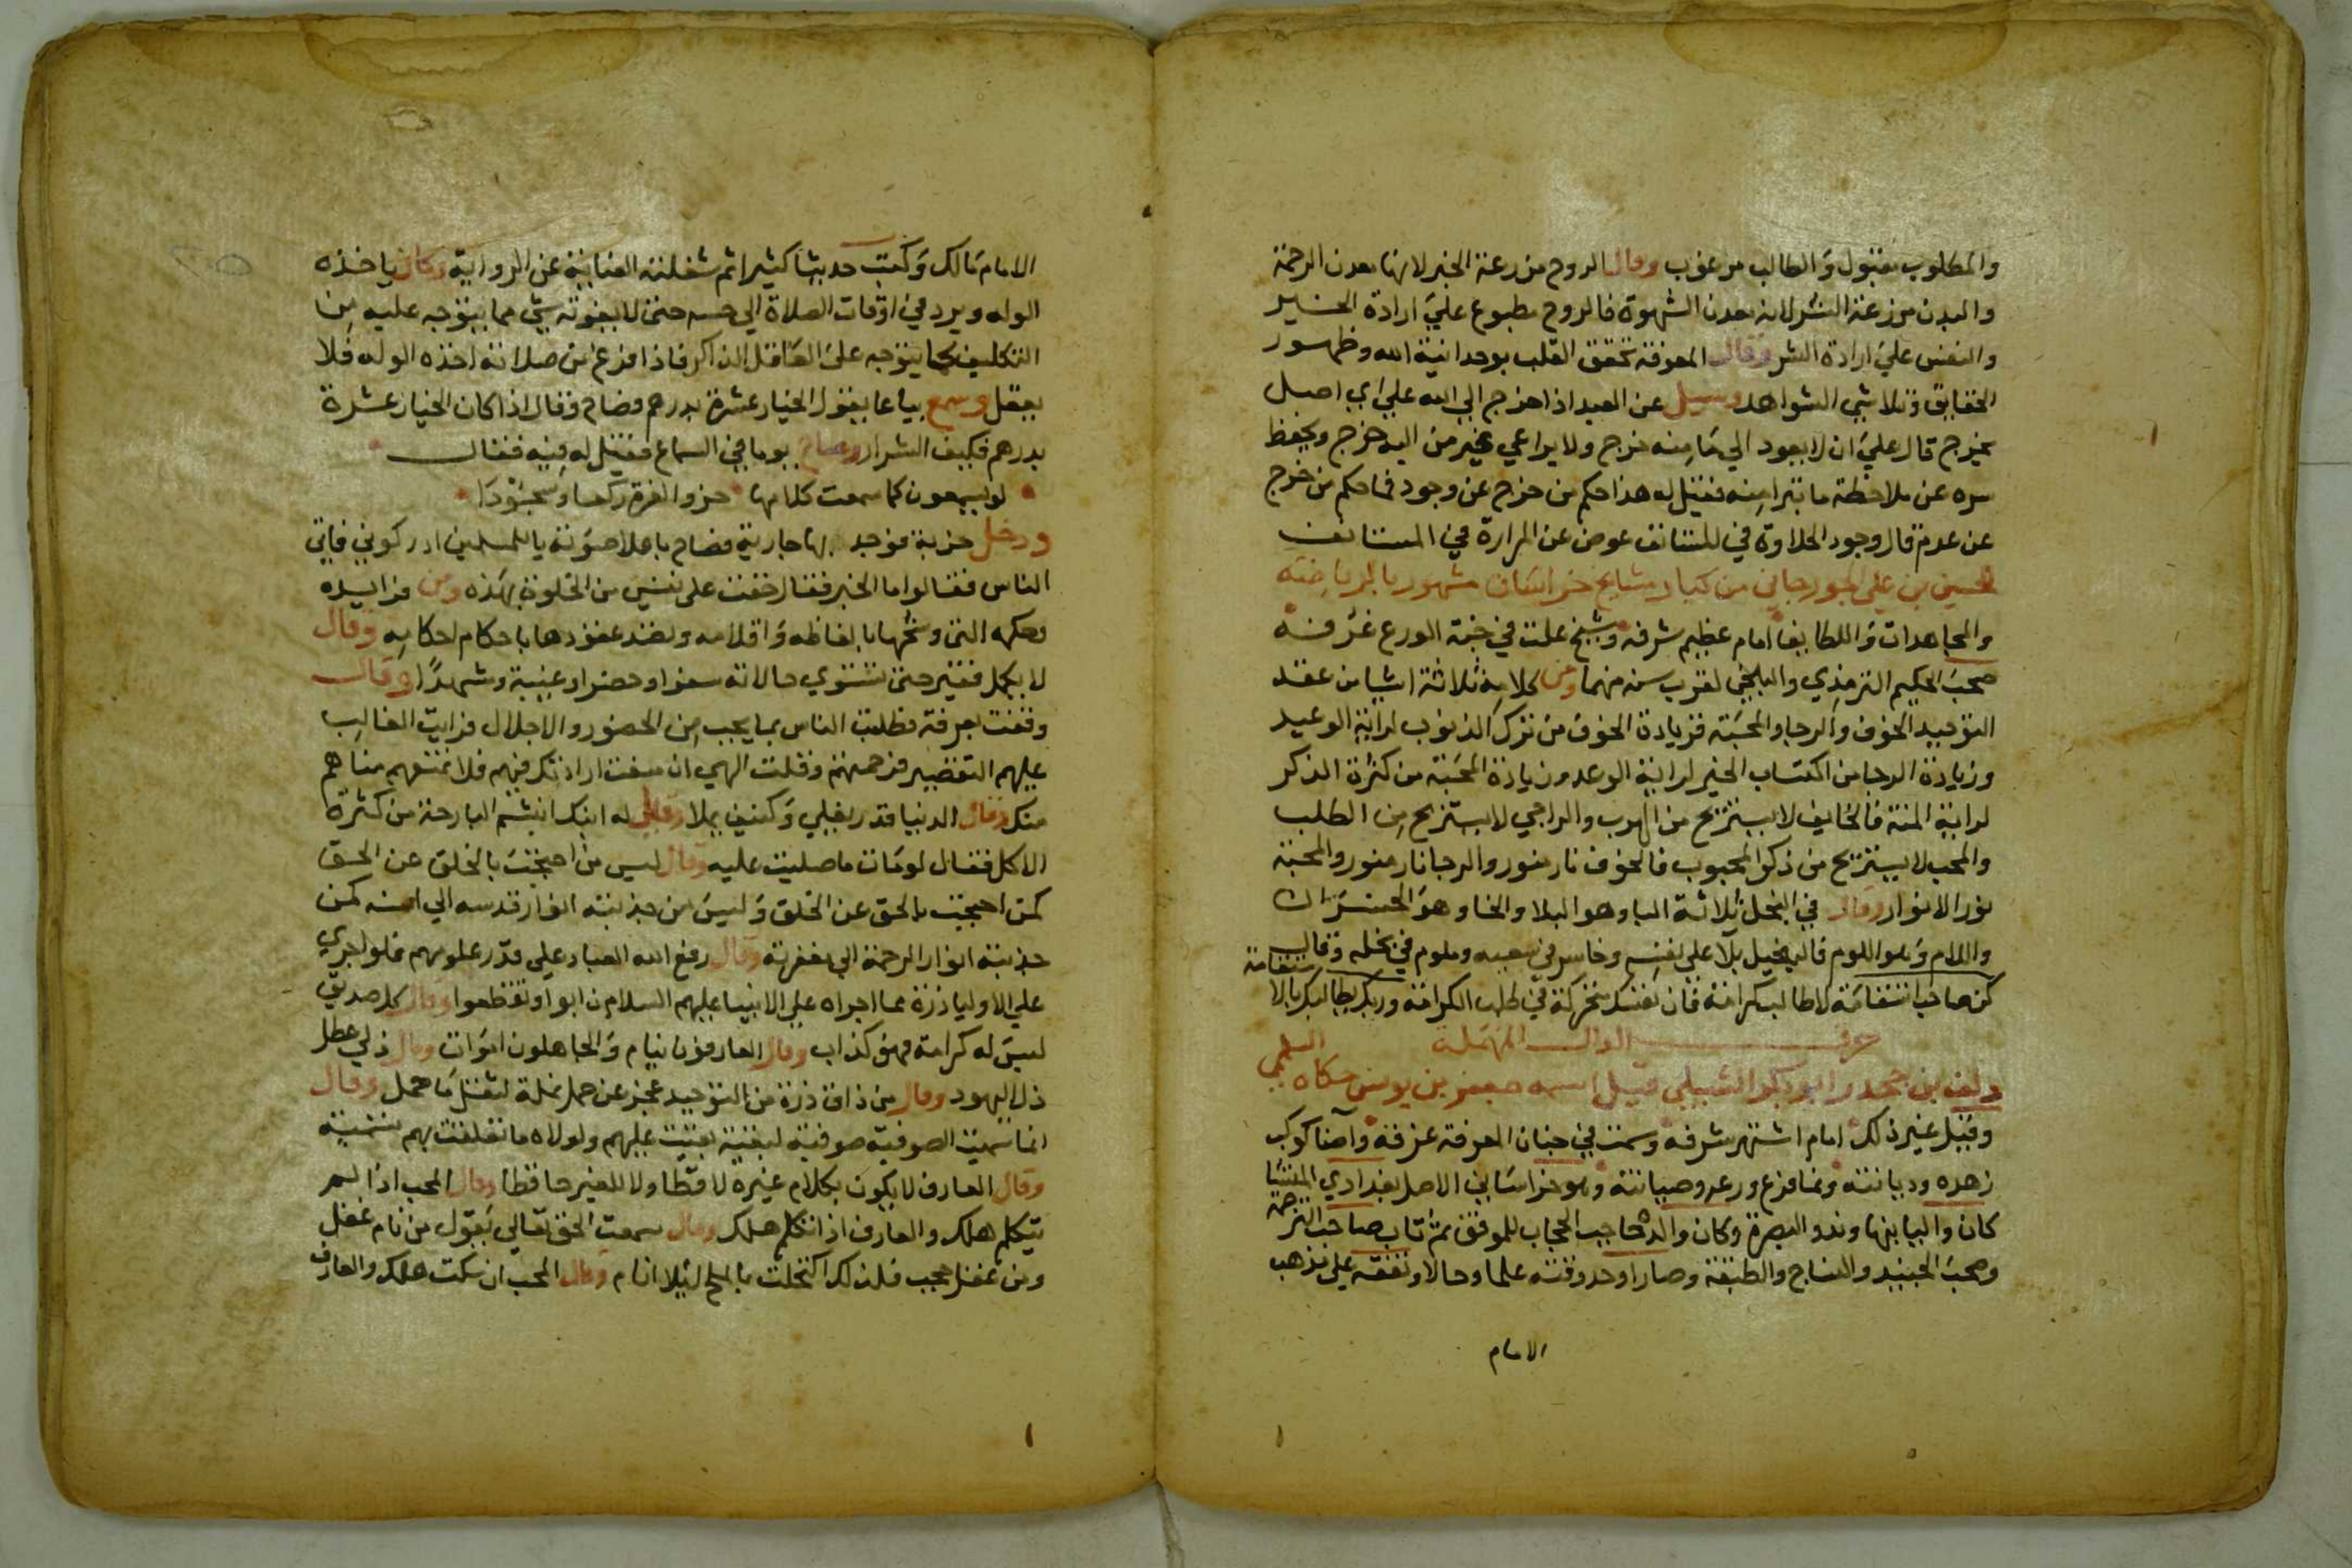 والمطلوب مقبول والطالب مرعوب وقال الروح مزرعة الخير لانها معدن الرحمة
والبدن مزرعة الشر لانه معدن الشهوة فالروح مطبوع علي ارادة الخير
والنفس علي ارادة الشر وقال المعرفة تحقق القلب بوحدانية الله وظهور
الحقايق وتلاشي الشواهد وسيل عن العبد اذا خرج الي الله علي اي اصل
يخرج قال علي ان لا يعود الي ما منه خرج ولا يراعي غير من اليه خرج ويحفظ
سره عن ملاحظة ما تبرا منه فقيل له هذا حكم من خرج عن وجود فما حكم من خرج
عن عدم قال وجود الحلاوة في المستانف عوض عن المرارة في السالف
الحسين بن علي الجورجاني من كبار مشايخ خراسان مشهور بالرياضة
والمجاهدات واللطايف امام عظيم شرفه وشيخ علت في جنة الورع غرفه
صحب الحكيم الترمذي والبلخي لقرب سنه منهما ومن كلامه ثلاثة اشيا من عقد
التوحيد الخوف والرجا والمحبة فزيادة الخوف من ترك الذنوب لراية الوعيد
وزيادة الرجا من اكتساب الخير لراية الوعد وزيادة المحبة من كثرة الذكر
لراية المنة فالخايف لا يستريح من الهرب والراجي لا يستريح من الطلب
والمحب لا يستريح من ذكر المحبوب فالخوف نار منور والرجا نار منور والمحبة
نور الانوار وقال في البخل ثلاثة البا وهو البلا والخا وهو الخسران
واللام وهو اللوم فالبخيل بلا على نفسه وخاسر في سعيه وملوم في بخله وقال
كن صاحب استقامة لا طالب كرامة فان نفسك متحركة في طلب الكرامة وربك يطالبك بالاستقامة
حرف الدال المهملة
دلف بن جحدر ابو بكر الشبلي قيل اسمه جعفر بن يونس حكاه السلمي
وقيل غير ذلك امام اشتهر شرفه وسمت في جنان المعرفة غرفه واضا كوكب
زهده وديانته ونما فرع ورعه وصيانته وهو خراساني الاصل بغدادي المنشا
كان واليا بنهاوند والبصرة وكان والده حاجب الحجاب للموفق ثم تاب صاحب الترجمة
وصحب الجنيد والنساج والطبقة وصار اوحد وقته علما وحالا وتفقه علي مذهب
الامام
الامام مالك وكتب حديثا كثيرا ثم شغلته العناية عن الرواية وكان ياخذه
الوله ويرد في اوقات الصلاة الي حسه حتى لا يفوته شي مما يتوجه عليه من
التكليف كما يتوجه على العاقل الذاكر فاذا فرغ من صلاته اخذه الوله فلا
يعقل وسمع بياعا يقول الخيار عشرة بدرهم فصاح وقال اذا كان الخيار عشرة
بدرهم فكيف الشرار وصاح يوما في السماع فقيل له فيه فقال
لو يسمعون كما سمعت كلامها خروا لعزة ركعا وسجودا
ودخل خربة فوجد بها جارية فصاح باعلا صوته يا للمسلمين ادركوني فاتي
الناس فقالوا ما الخبر فقال خفت على نفسي من الخلوة بهذه ومن فرايده
وحكمه التي وشحها بالفاظه واقلامه ونضد عقودها باحكام احكامه وقال
لا يكمل فقير حتى تستوي حالاته سفرا وحضرا وغيبة وشهدا وقال
وقفت بعرفة فطلبت الناس بما يجب من الحضور والاجلال فرايت الغالب
عليهم التقصير فرحمتهم وقلت الهي ان منعت ارادتك فيهم فلا تمنعهم مناهم
منك وقال الدنيا قدر يغلي وكنيف يملا وقيل له ابنك ابشم البارحة من كثرة
الاكل فقال لو مات ما صليت عليه وقال ليس من احتجب بالخلق عن الحق
كمن احتجب بالحق عن الخلق وليس من جذبته انوار قدسه الي انسه كمن
جذبته انوار الرحمة الي مغفرته وقال رفع الله العباد علي قدر علومهم فلو اجري
علي الاوليا ذرة مما اجراه علي الانبيا عليهم السلام ذابوا وتقطعوا وقال كل صديق
ليس له كرامة فهو كذاب وقال العارفون نيام والجاهلون اموات وقال ذلي عطل
ذل اليهود وقال من ذاق ذرة من التوحيد عجز عن حمل نملة لثقل ما حمل وقال
انما سميت الصوفية صوفية لبقية بقيت عليهم ولولاه ما تعلقت بهم تسمية
وقال العارف لا يكون بكلام غيره لافظا ولا للغير حافظا وقال المحب اذا لم
يتكلم هلك والعارف اذا تكلم هلك وقال سمعت الحق تعالي يقول من نام غفل
ومن غفل حجب فلذلك اكتحلت بالملح ليلا انام وقال المحب ان سكت هلك والعارف